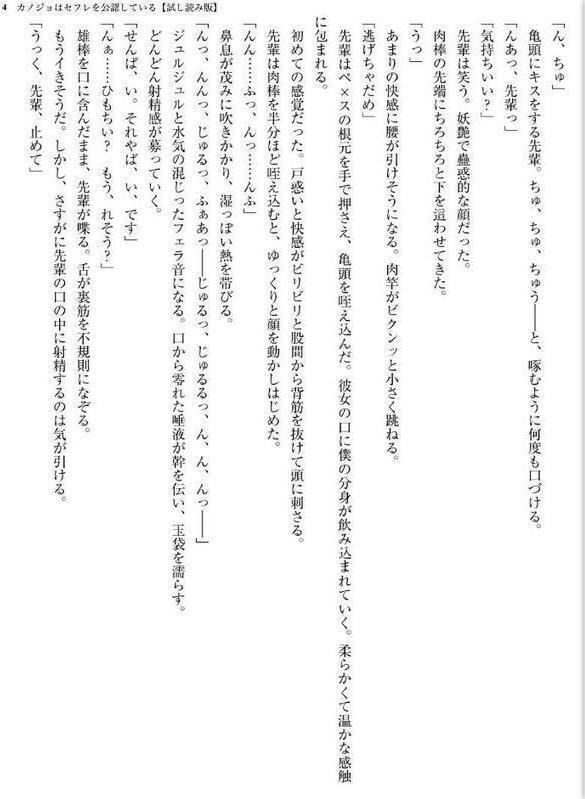 4 カノジョはセフレを公認している【試し読み版】
「ん、ちゅ」
亀頭にキスをする先輩。ちゅ、ちゅ、ちゅう――と、啄むように何度も口づける。
「んあっ、先輩っ」
「気持ちいい?」
先輩は笑う。妖艶で蠱惑的な顔だった。
肉棒の先端にちろちろと下を這わせてきた。
「うっ」
あまりの快感に腰が引けそうになる。肉竿がビクンッと小さく跳ねる。
「逃げちゃだめ」
先輩はペ×スの根元を手で押さえ、亀頭を咥え込んだ。彼女の口に僕の分身が飲み込まれていく。柔らかくて温かな感触
に包まれる。
初めての感覚だった。戸惑いと快感がビリビリと股間から背筋を抜けて頭に刺さる。
先輩は肉棒を半分ほど咥え込むと、ゆっくりと顔を動かしはじめた。
「んん……ふっ、んっ……んふ」
鼻息が茂みに吹きかかり、湿っぽい熱を帯びる。
「んっ、んんっ、じゅるっ、ふぁあっ――じゅるっ、じゅるるっ、ん、ん、んっ――」
ジュルジュルと水気の混じったフェラ音になる。口から零れた唾液が幹を伝い、玉袋を濡らす。
どんどん射精感が募っていく。
「せんぱ、い。それやば、い、です」
「んぁ……ひもちい? もう、れそう?」
雄棒を口に含んだまま、先輩が喋る。舌が裏筋を不規則になぞる。
もうイきそうだ。しかし、さすがに先輩の口の中に射精するのは気が引ける。
「うっく、先輩、止めて」